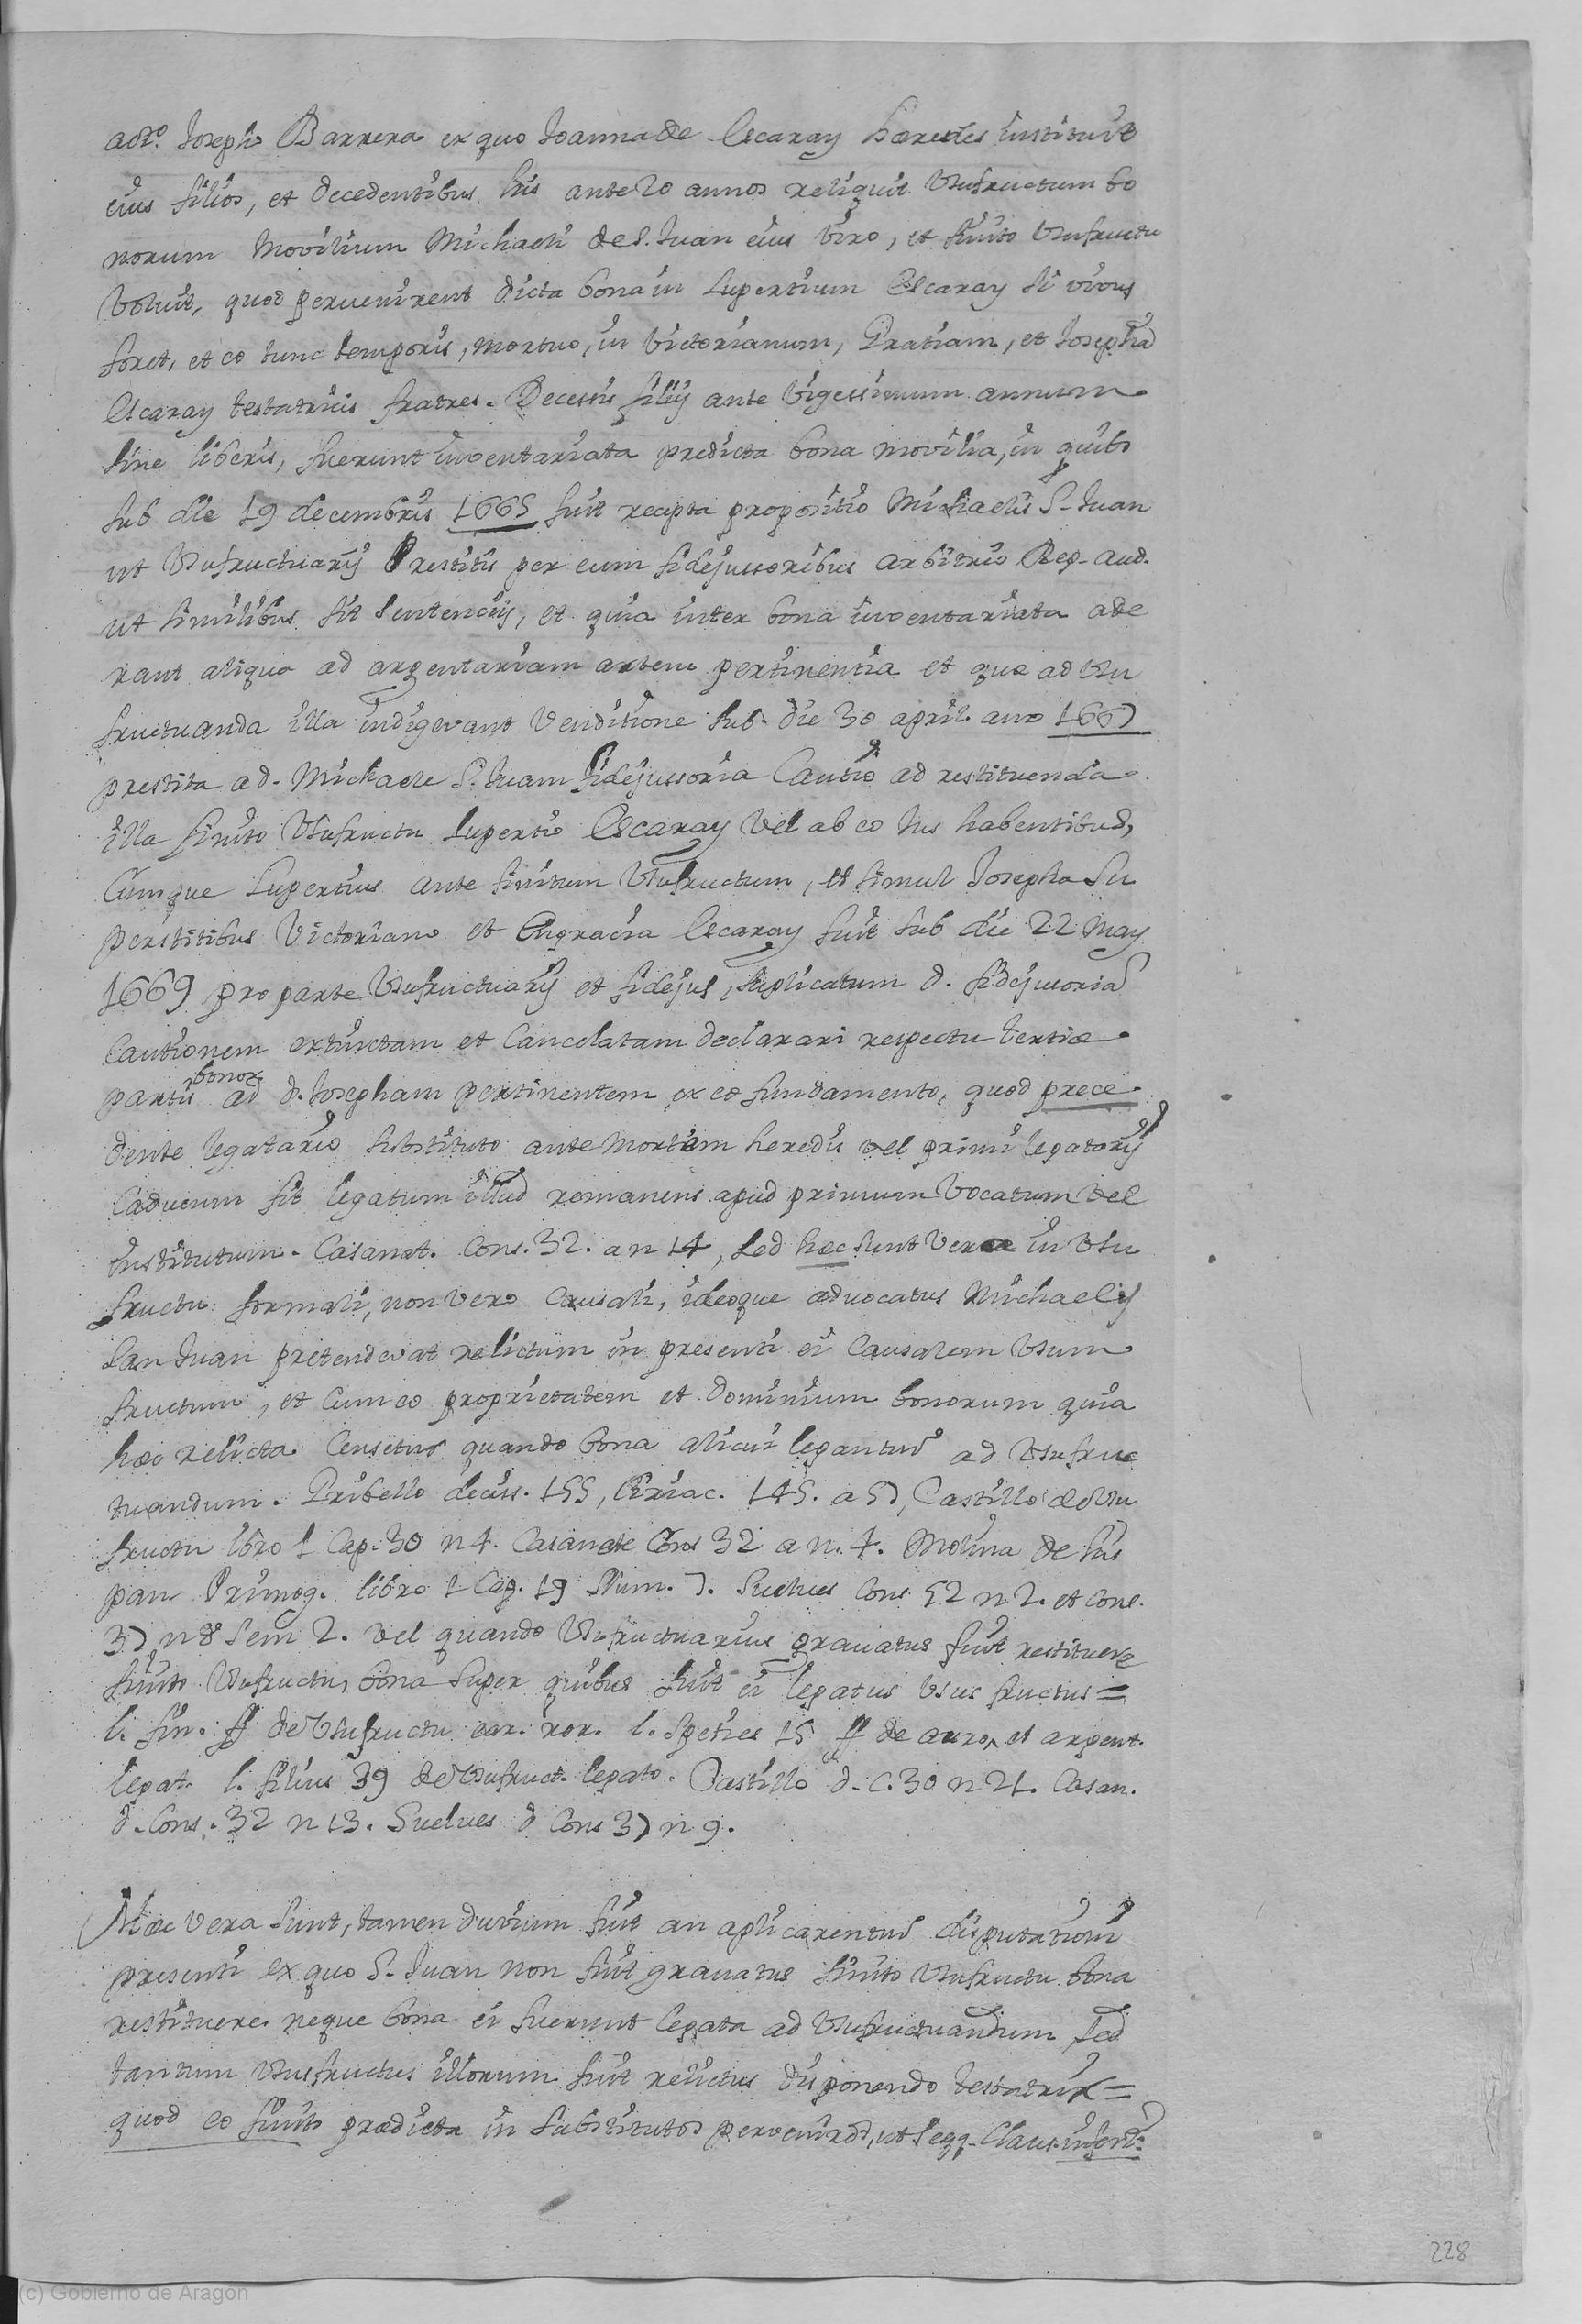 act.º Joseph Barrera ex quo Joanna de Escaray hæredes instituit
eius filios, et decedentibus his ante 20 annos reliquit Usufructum bo
norum Movilium Michaeli de S. Juan eius viro, et finito Usufructu
voluit, quod pervenirent dicta bona in Lupertium Escaray si vivus
foret, et eo tunc temporis, mortuo, in Victorianum, Gratiam, et Josepha
Escaray testatricis fratres. Decessis filijs ante vigessimum annum
sine liberis, fuerunt inventariata predicta bona movilia, in quibs
sub die 19 decembris 1665 fuit recepta propositio Michaelis S. Juan
ut Usufructuarij Prestitis per eum fidejussoribus arbitrio Reg. aud.
ut similibus fit sentencijs, et quia inter bona inventariata ade
rant aliqua ad argentariam artem pertinentia et quæ ad Usu
fructuanda illa indigevant venditione sub die 30 april. ano 1667
prestita a d. Michaele S. Juam fidejussoria Cautio ad restituenda
illa finito Usufructu Lupertio Escaray vel ab eo Jus habentibus,
Cumque Lupertius ante finitum Usufructum, et simul Josepha su
perstitibus Victoriano et Engracia Escaray fuit sub die 22 May
1669 pro parte Usufructuarij et fidejus, suplicatum d. fidejussoria
Cautionem extinctam et Cancelatam declarari respectu tertiæ
partis bonor. ad d. Josepham pertinentem ex eo fundamento, quod prece
dente legatario substituto ante mortem heredis vel primi legatarij
Caducum fit legatum illud remanens apud primum vocatum vel
institutum. Casanat. Cons. 32. a n 14, sed hæc sunt vera in Usu
fructu formali, non vero Causali, ideoque advocatus Michaelis
San Juan pretendevat relictum in presenti ei Causalem Usum
fructum, et cum eo proprietatem et dominium bonorum quia
hæc relicta Censetur quando bona alicui legantur ad Usufruc
tuandum. Gribello deciss. 155, Ciriac. 145. a 57, Castillo de Usu
fructu libro 1 Cap. 30 n 4. Casanate Cons 32 a n. 4. Molina de his
pan Primog. libro 1 Cap. 19 Num. 7. Suelves Cons 52 n 2. et Cons.
37 n 8 Sem 2. vel quando Usufructuarius gravatus fuit restituere
finito Usufructu, bona super quibus fuit ei legatus Usus fructus =
l. fin. ff de Usufructu ear. rer. l. Species 15 ff de auro, et argent.
legat. l. filius 39 de Usufruct. legato. Castillo d. C. 30 n 21. Casan.
d. Cons. 32 n 13. Suelves d Cons 37 n 9.

Hæc vera sunt, tamen duvium fuit an aplicarentur disputationi
presenti ex quo S. Juan non fuit gravatus finito Usufructu bona
restituere neque bona ei fuerunt legata ad Usufructuandum sed
tantum Ususfructus illorum fuit relictus disponendo testatrix =
quod eo finito prædicta in substitutos pervenirent, ut seqq. Claus. insert.
228
(c) Gobierno de Aragón